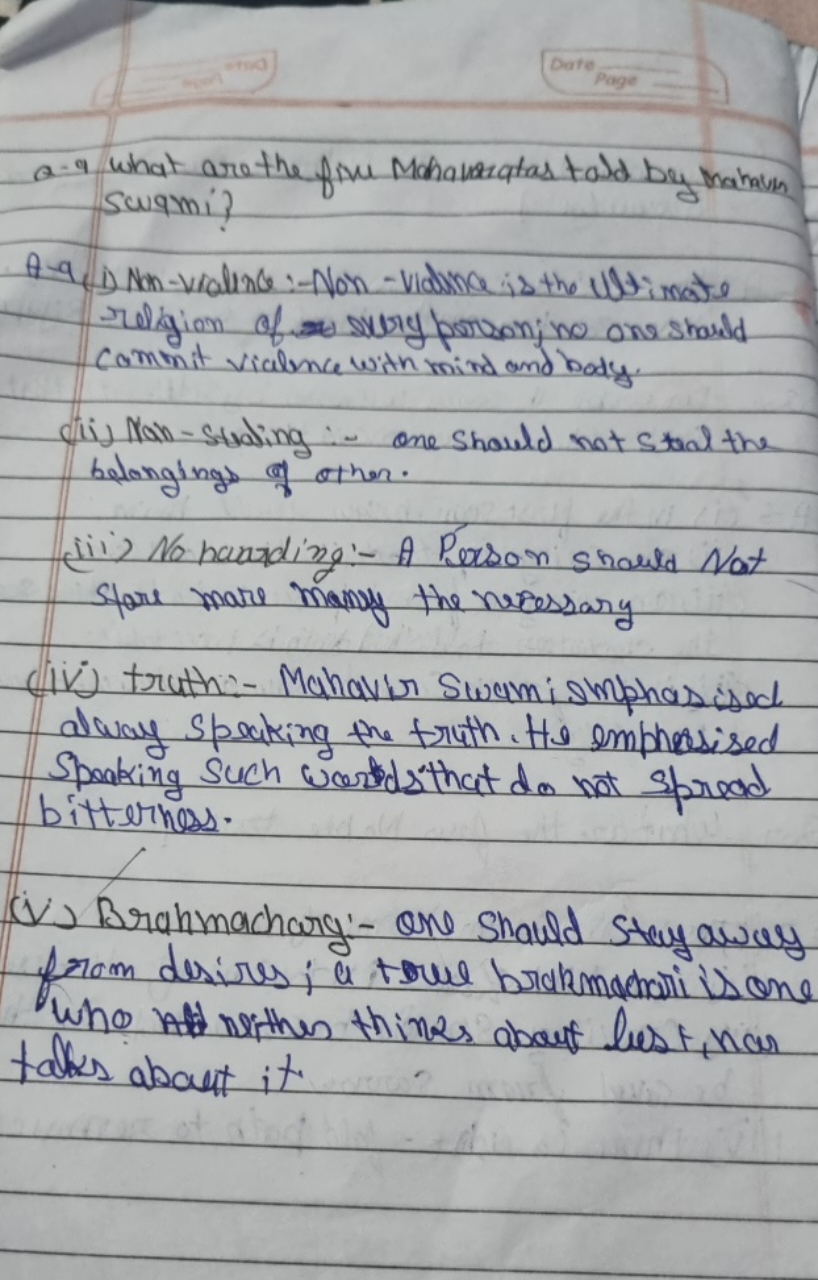 Date
Page
Date
Page
Q-9 what are the five Mahavratas told by Mahavir
Swami?
A-9 (i) Non-violence :- Non-violence is the Ultimate
religion of every person; no one should
commit violence with mind and body.
(ii) Non-stealing :- one should not steal the
belongings of other.
(iii) No hoarding :- A Person should Not
store more money the necessary
(iv) truth :- Mahavir Swami emphasised
alway speaking the truth. He emphasised
Speaking such words that do not spread
bitterness.
(v) Brahmachary :- one should stay away
from desires; a true brahmachari is one
who neither thinks about lust, nor
talks about it